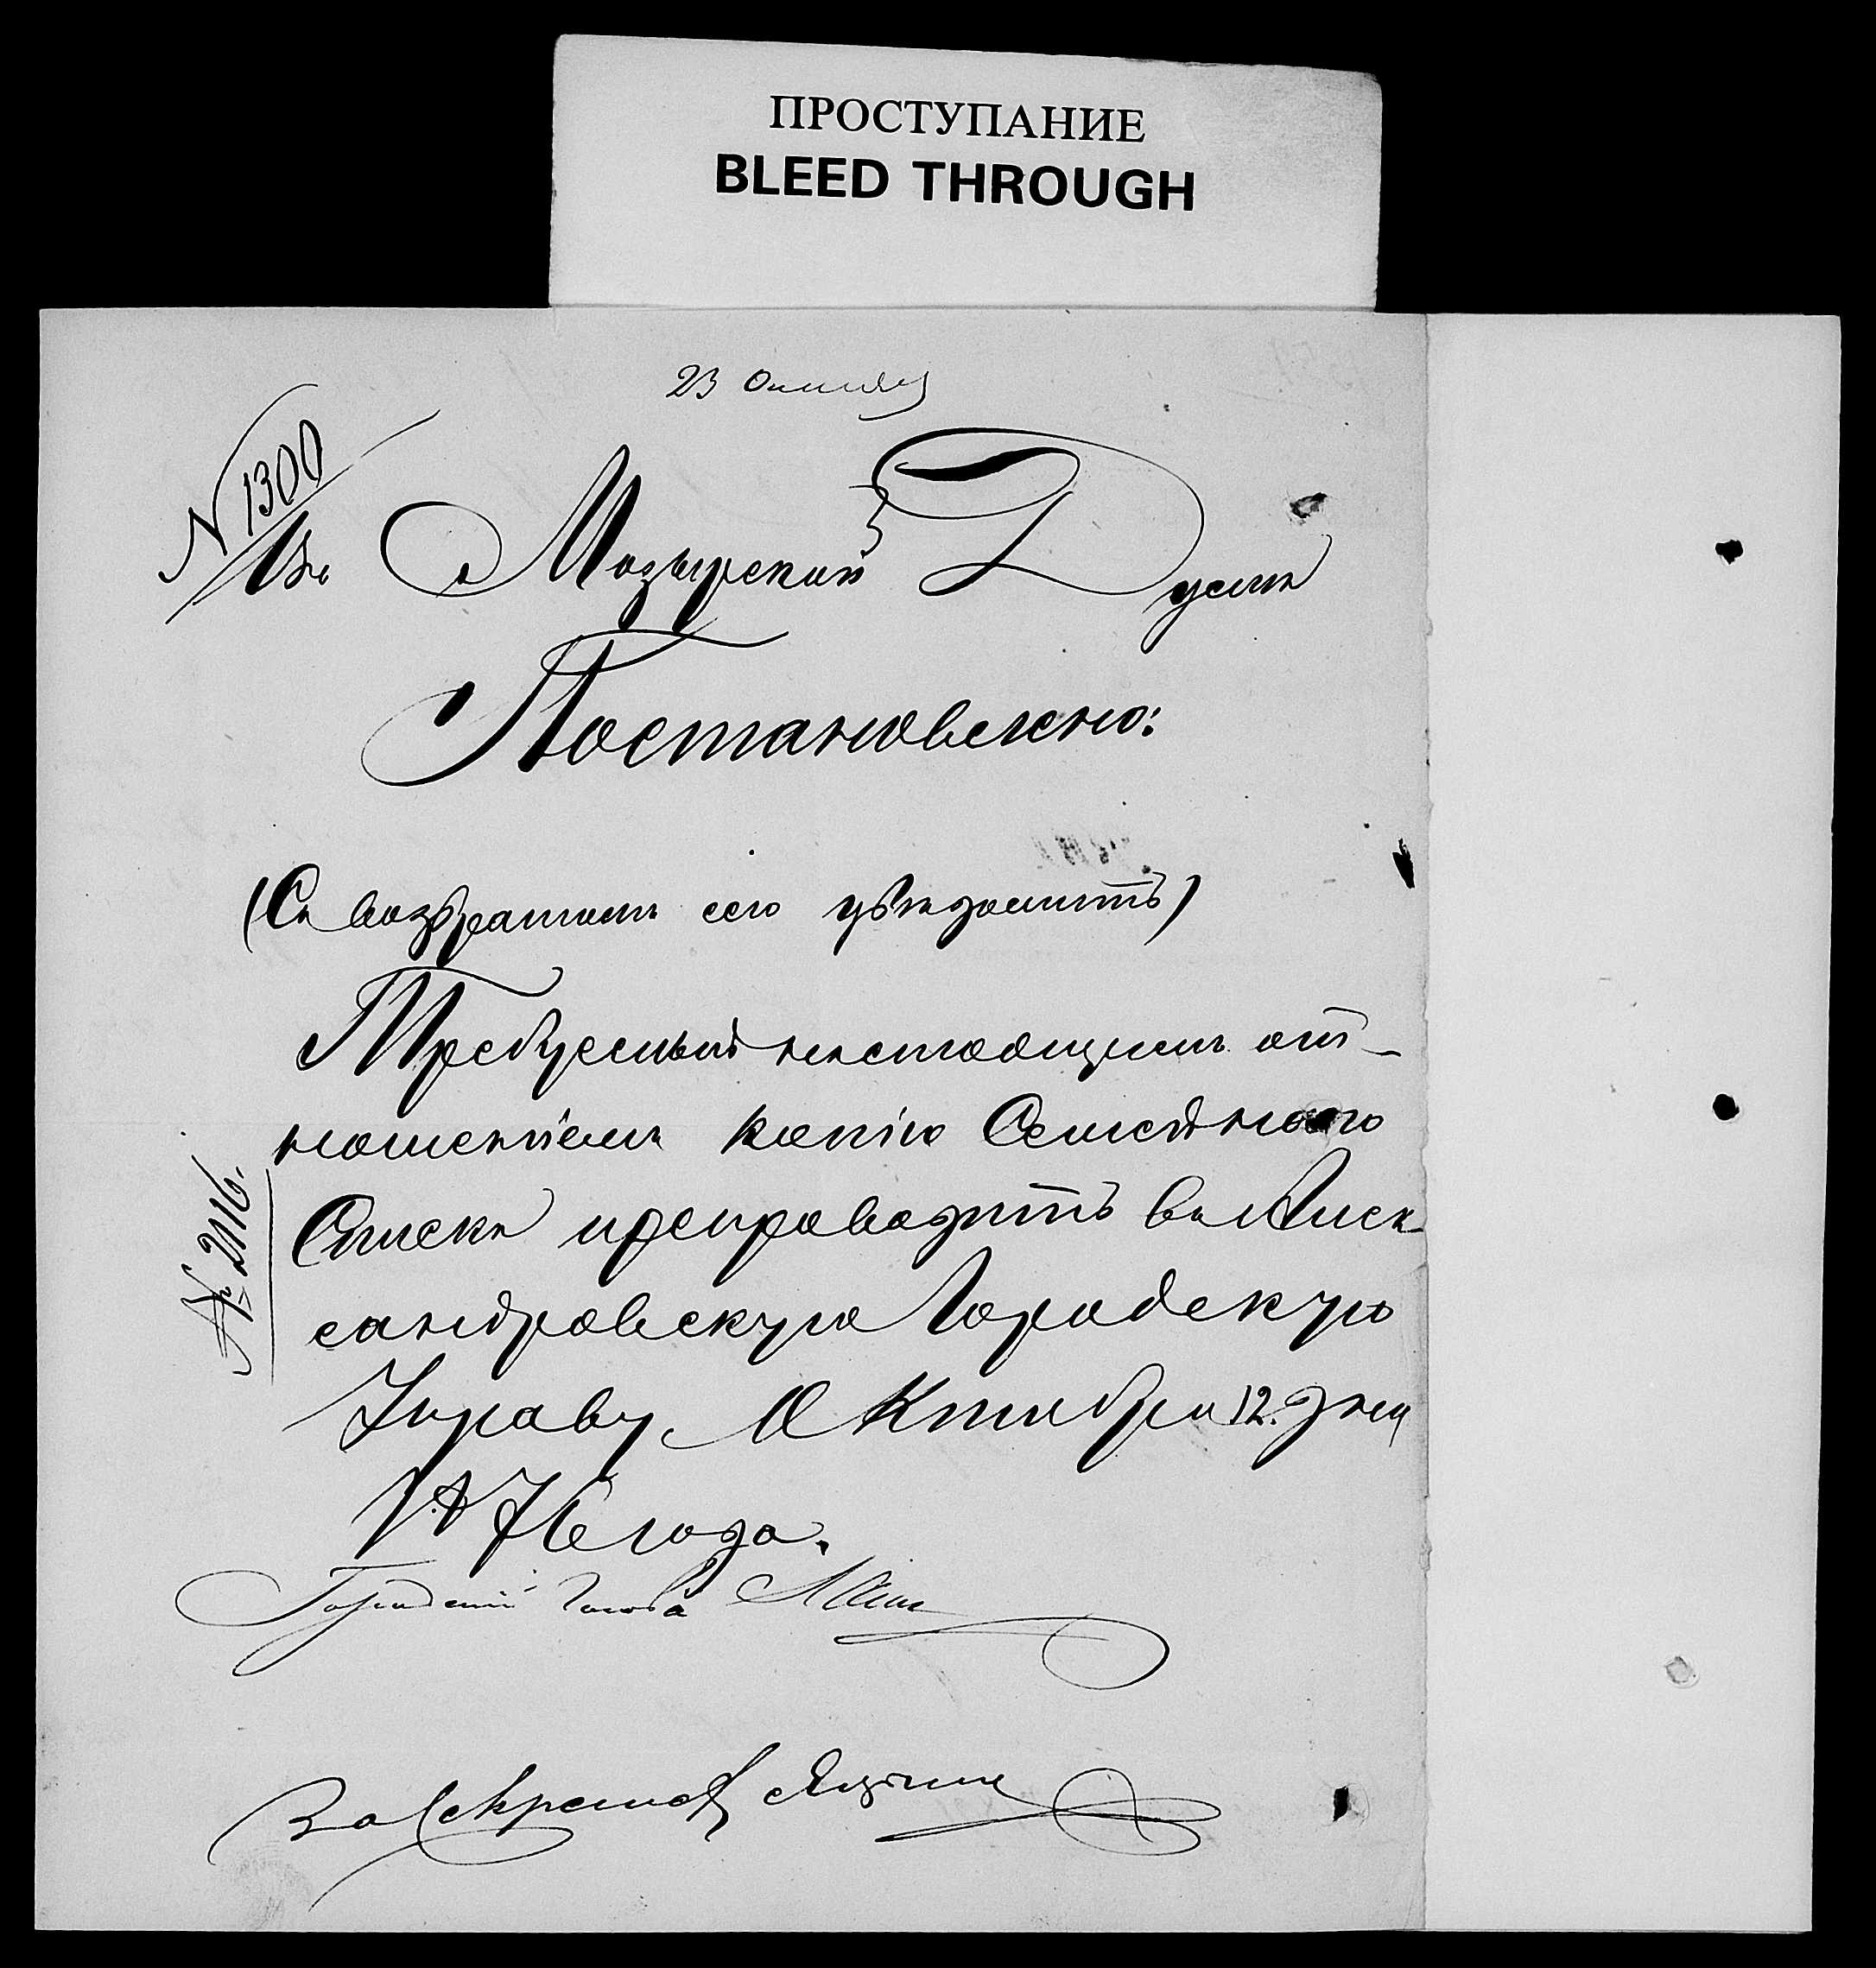 ПРОСТУПАНИЕ
BLEED THROUGH
23 Октября
N 1300
Въ Мозырской Думѣ
Постановлено:
(Съ возвратомъ сего увѣдомить)
Требуемый настоящимъ от-
ношеніемъ копію Семейнаго
Списка препроводить въ Алек
сандровскую Городскую
Управу, Октября 12. дня
1876 года.
№ 2116.
Городской Голова
За Секретаря